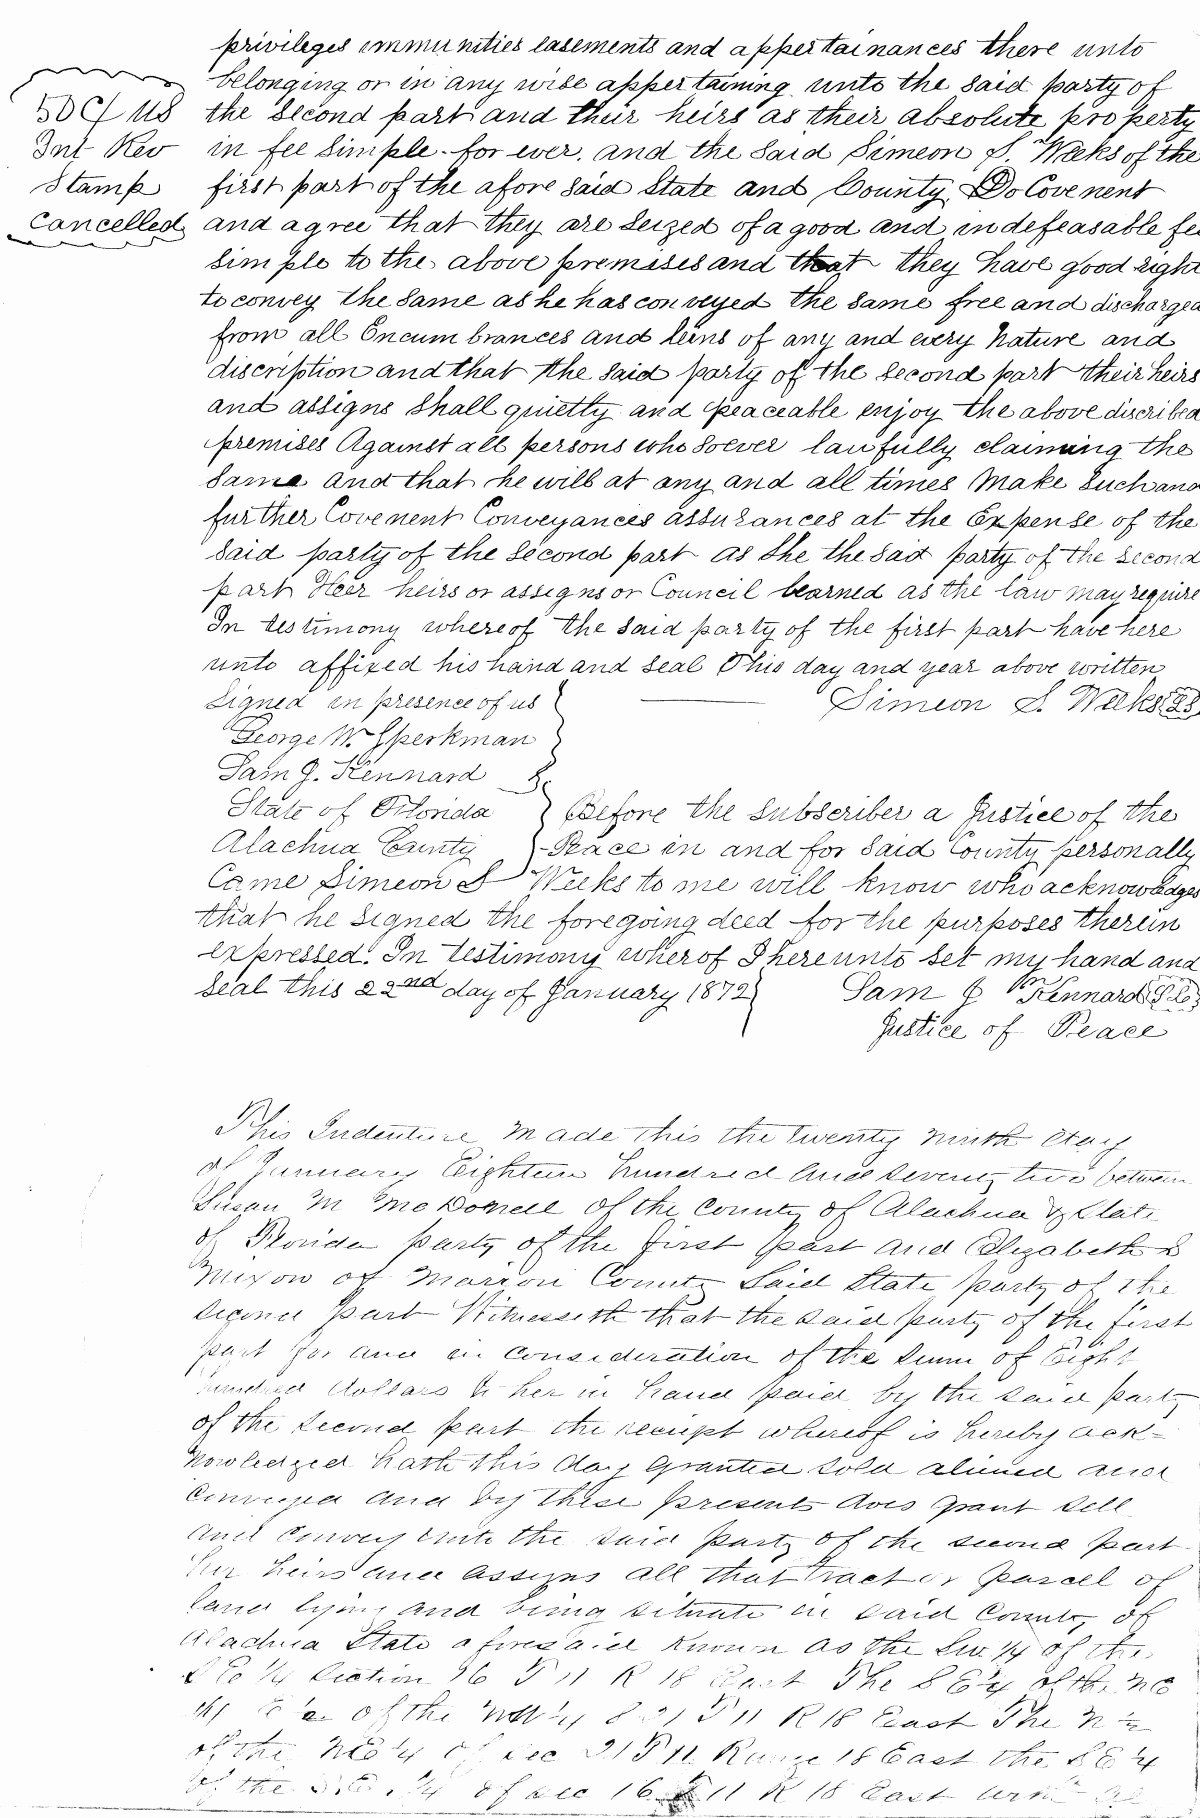 privileges immunities easements and appertainances there unto
belonging or in any wise appertaining unto the said party of
50 c/ US
Int Rev
Stamp
Cancelled
the second part and their heirs as their absolute property
in fee simple for ever. and the said Simeon S. Weeks of the
first part of the afore said State and County Do Covenent
and agree that they are seized of a good and indefeasable fee
simple to the above premises and that they have good right
to convey the same as he has conveyed the same free and discharged
from all Encumbrances and leins of any and every nature and
discription and that the said party of the second part their heirs
and assigns shall quietly and peaceable enjoy the above discribed
premises Against all persons who soever lawfully claiming the
same and that he will at any and all times Make such and
further Covenent Conveyances assurances at the Expense of the
said party of the second part as she the said party of the second
part Heer heirs or assigns or Council learned as the law may require
In testimony whereof the said party of the first part have here
unto affixed his hand and seal This day and year above written
Signed in presence of us Simeon S. Weeks
George W. Sperkman
Sam J. Kennard
State of Florida } Before the subscriber a Justice of the
Alachua County } Peace in and for said County personally
Came Simeon S Weeks to me will know who acknowledges
that he signed the foregoing deed for the purposes therein
expressed. In testimony wherof I hereunto set my hand and
seal this 22nd day of January 1872 } Sam J Kennard
Justice of Peace
This Indenture Made this the twenty ninth day
of January Eighteen hundred and seventy two between
Susan M McDonell of the County of Alachua & State
of Florida party of the first part and Elizabeth
Mixon of Marion County Said State party of the
second part Witnesseth that the said party of the first
part for and in consideration of the sum of Eight
hundred dollars to her in hand paid by the said party
of the second part the receipt whereof is hereby ack-
nowledged hath this day granted sold aliened and
conveyed and by these presents does grant sell
and convey unto the said party of the second part
her heirs and assigns all that tract or parcell of
land lying and being situate in said County of
Alachua State aforesaid known as the Sw 1/4 of the
S E 1/4 Section 16 T 11 R 18 East The S E 1/4 of the NE
1/4 of the NW 1/4 S 21 T 11 R 18 East The N 1/2
of the NE 1/4 of Sec 21 T 11 Range 18 East the S E 1/4
of the S.E. 1/4 of Sec 16 T 11 R 18 East